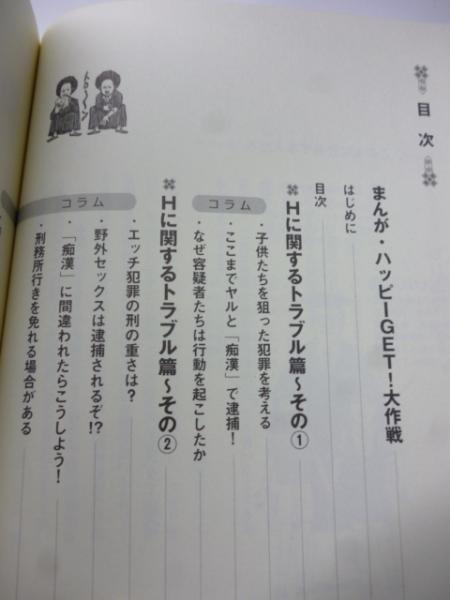 目次
まんが・ハッピーGET!大作戦
はじめに
目次
Hに関するトラブル篇〜その①
・子供たちを狙った犯罪を考える
・ここまでヤルと「痴漢」で逮捕!
コラム
・なぜ容疑者たちは行動を起こしたか
Hに関するトラブル篇〜その②
・エッチ犯罪の刑の重さは?
・野外セックスは逮捕されるぞ!?
コラム
・「痴漢」に間違われたらこうしよう!
・刑務所行きを免れる場合がある